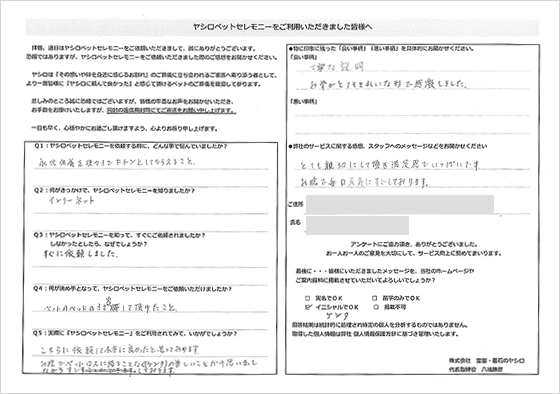 ヤシロペットセレモニーをご利用いただきました皆様へ
拝啓、過日はヤシロペットセレモニーをご依頼いただきまして、誠にありがとうございます。
恐縮ではありますが、ヤシロペットセレモニーをご依頼いただいた際のご感想をお聞かせください。
ヤシロは『その想いや絆を身近に感じるお別れ』のご葬儀に立ち会われるご家族へ寄り添う者として、
より一層皆様に『ヤシロに頼んで良かった』と感じて頂けるペットのご葬儀を目指しております。
悲しみのところ誠に恐縮ではございますが、皆様の率直なお声をお聞かせいただき、
お手数をお掛けいたしますが、同封の返信用封筒にてご返送をお願い申し上げます。
一日も早く、心穏やかにお過ごし頂けますよう、心よりお祈り申し上げます。
Q1：ヤシロペットセレモニーを依頼する時に、どんな事で悩んでいましたか？
永代供養を後々までキチンとしてもらえること。
Q2：何がきっかけで、ヤシロペットセレモニーを知りましたか？
インターネット
Q3：ヤシロペットセレモニーを知って、すぐにご依頼されましたか？
しなかったとしたら、なぜでしょうか？
すぐに依頼しました。
Q4：何が決め手となって、ヤシロペットセレモニーをご依頼いただけましたか？
ペットのペットの して頂けたこと。
Q5：実際に『ヤシロペットセレモニー』をご利用されてみて、いかがでしょうか？
こちらに依頼して本当に良かったと思っております
お陰でペットロスに陥ることなく 楽しいことだけ思い出し
ながら すごしております。
●特に印象に残った「良い事柄」「悪い事柄」を具体的にお聞かせください。
「良い事柄」
丁寧な説明
お骨がとてもきれいな形で感激しました。
「悪い事柄」
●弊社のサービスに関する感想、スタッフへのメッセージなどをお聞かせください
とても親切にして頂き満足感でいっぱいです
お陰で毎日元気にすごしております。
ご住所
氏名
アンケートにご協力頂き、ありがとうございました。
お一人お一人のご意見を大切にして、サービス向上に努めてまいります。
最後に・・・皆様にいただきましたメッセージを、当社のホームページや
ご案内資料に掲載させていただいてよろしいでしょうか？
□ 実名でOK □ 苗字のみでOK
☑ イニシャルでOK □ 掲載不可
回答結果は統計的に処理され特定の個人を分析するものではありません。
取得した個人情報は弊社 個人情報保護方針に基づき管理いたします。
株式会社 霊園・墓石のヤシロ
代表取締役 八城勝彦